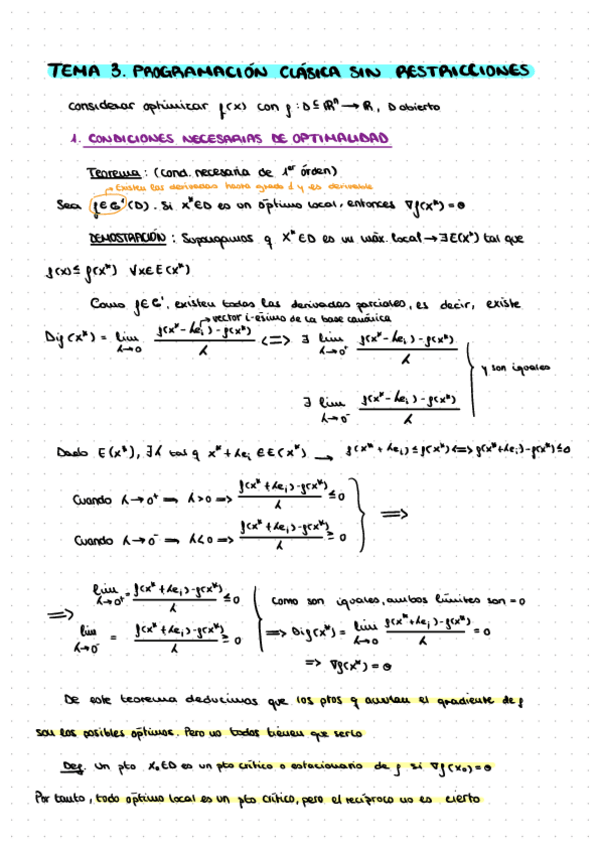 TEMA 3. PROGRAMACIÓN CLÁSICA SIN RESTRICCIONES
considerar optimizar f(x) con f: D⊆ℝⁿ → ℝ, D abierto
1. CONDICIONES NECESARIAS DE OPTIMALIDAD
Teorema: (cond. necesaria de 1er órden)
Existen las derivadas hasta grado 1 y es derivable
Sea f∈C¹(D). Si x*∈D es un óptimo local, entonces ∇f(x*) = θ
DEMOSTRACIÓN: Supongamos q x*∈D es un máx. local → ∃E(x*) tal que
f(x) ≤ f(x*) ∀x∈E(x*)
Como f∈C¹, existen todas las derivadas parciales, es decir, existe
vector i-ésimo de la base canónica
Dif(x*) = lim h→0 (f(x*-hei)-f(x*))/h <=> ∃ lim h→0⁺ (f(x*-hei)-f(x*))/h
y son iguales
∃ lim h→0⁻ (f(x*-hei)-f(x*))/h
Dado E(x*), ∃h tal q x*+hei ∈ E(x*) → f(x*+hei) ≤ f(x*) <=> f(x*+hei)-f(x*) ≤ 0
Cuando h→0⁺ → h>0 => (f(x*+hei)-f(x*))/h ≤ 0
=>
Cuando h→0⁻ → h<0 => (f(x*+hei)-f(x*))/h ≥ 0
lim h→0⁺ = (f(x*+hei)-f(x*))/h ≤ 0 como son iguales, ambos límites son = 0
=> lim h→0⁻ = (f(x*+hei)-f(x*))/h ≥ 0 => Dif(x*) = lim h→0 (f(x*+hei)-f(x*))/h = 0
=> ∇f(x*) = θ
De este teorema deducimos que los ptos q anulan el gradiente de f
son los posibles óptimos. Pero no todos tienen que serlo
Def. Un pto x₀∈D es un pto crítico o estacionario de f si ∇f(x₀) = θ
Por tanto, todo óptimo local es un pto crítico, pero el recíproco no es cierto